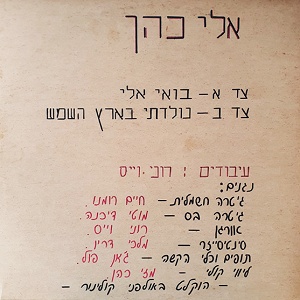 אלי כהן
צד א – בואי אלי
צד ב – נולדתי בארץ השמש
עיבודים : רוני וייס
נגנים:
גיטרה חשמלית – חיים רומנו.
גיטרה בס – מוטי דיכנה.
אורגן – רוני וייס.
סינטיסייזר – מלכי דריו.
תופים וכלי הקשה – ג'אן פול.
ליווי קולי – מזי כהן
– הוקלט באולפני קולינור –